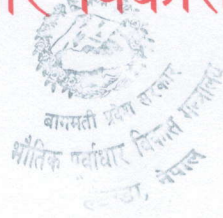 बागमती प्रदेश सरकार
भौतिक पूर्वाधार विकास मन्त्रालय
नेपाल